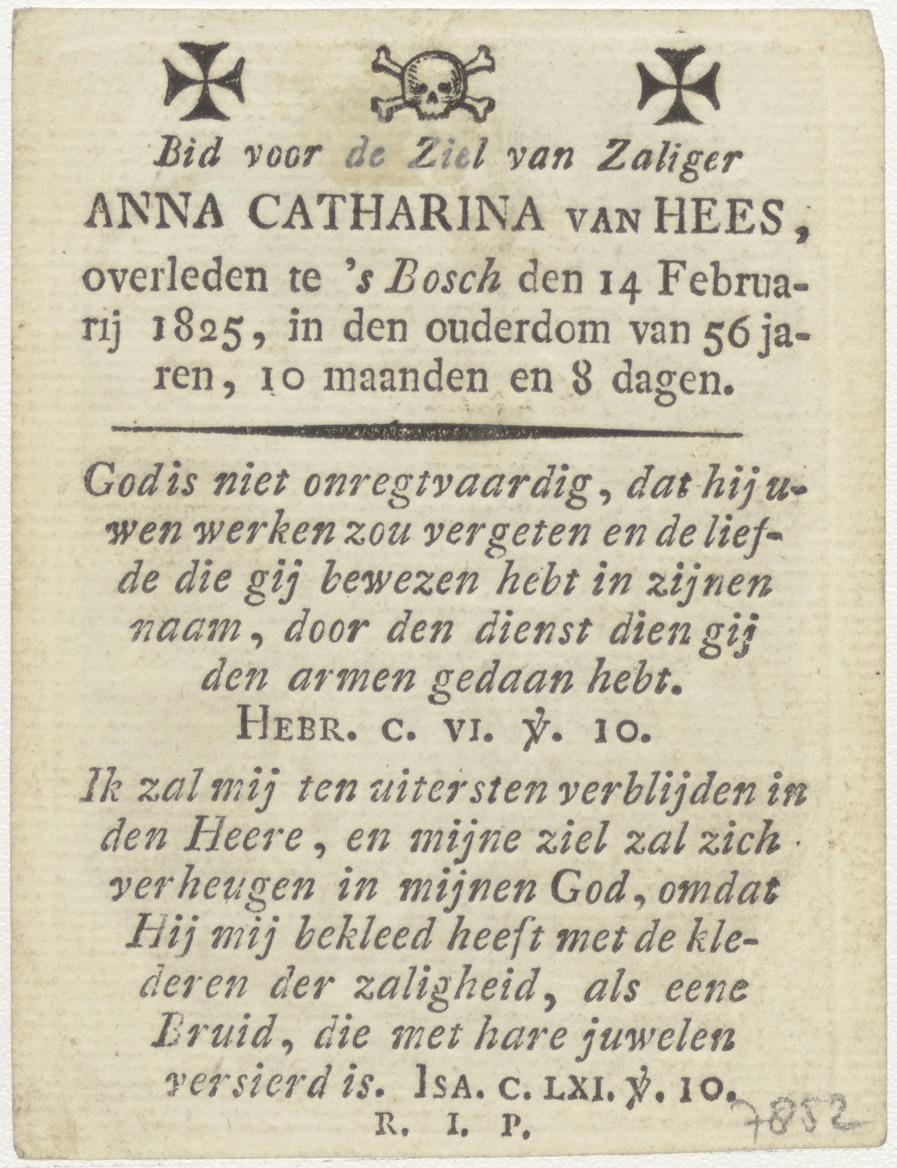 Bid voor de Ziel van Zaliger
ANNA CATHARINA VAN HEES,
overleden te 's Bosch den 14 Februa-
rij 1825, in den ouderdom van 56 ja-
ren, 10 maanden en 8 dagen.
God is niet onregtvaardig, dat hij u-
wen werken zou vergeten en de lief-
de die gij bewezen hebt in zijnen
naam, door den dienst dien gij
den armen gedaan hebt.
HEBR. C. VI. ℣. 10.
Ik zal mij ten uitersten verblijden in
den Heere, en mijne ziel zal zich
verheugen in mijnen God, omdat
Hij mij bekleed heeft met de kle-
deren der zaligheid, als eene
Bruid, die met hare juwelen
versierd is. ISA. C. LXI. ℣. 10.
R. I. P.
7852